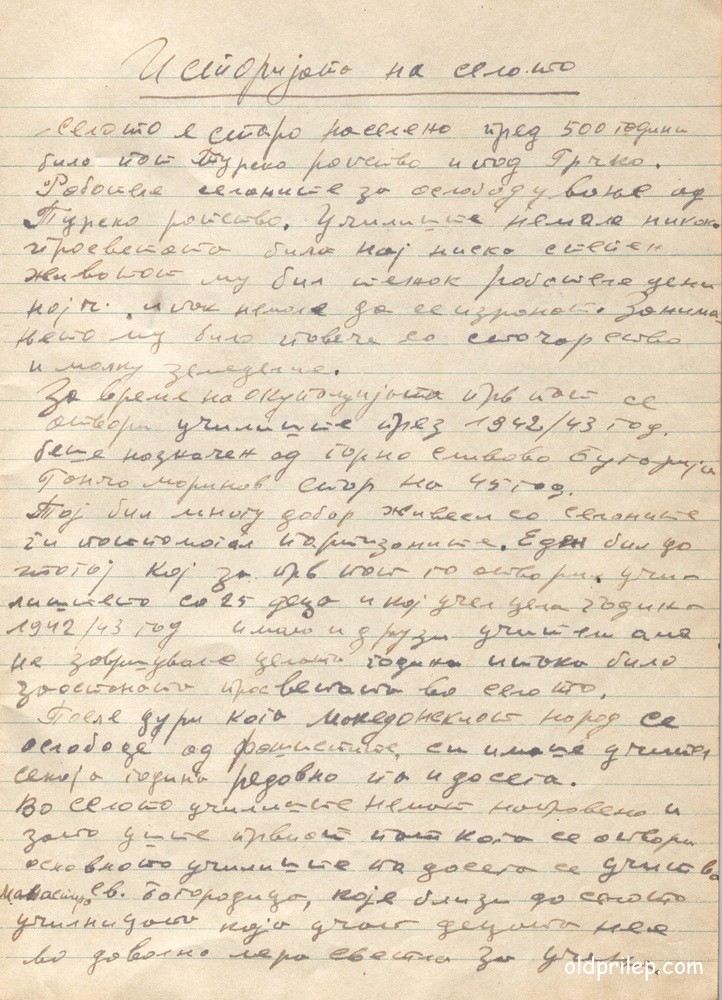 Историјата на селото
Селото е старо населено пред 500 години
било пот Турско ропство и под Грчко.
Работеле селаните за ослободување од
Турско ропство. Училиште немале никако
просветата била нај ниска степен
животот му бил тежок работеле дени
ноји. и пак неможе да се изранат. Занима
њето му било повеќе со сточарство
и малку земједелие.
За време на окупацијата прв пат се
отвори училиште през 1942/43 год.
беше назначен од Горно Сливово Бугарија
Тончо Маринов стар на 45 год.
Тој бил многу добар живеел со селаните
ги потпомогал партизаните. Еден бил до
тој кој за прв пат го отворил учи-
лиштето со 25 деца и кој учел цела година
1942/43 год имало и други учители ама
не завршувале целата година и така било
заостаната просветата во селото.
После дури кога Македонскиот народ се
ослободи од фашистите, си имаше учител
секоја година редовно па и досега.
Во селото училиште немат направено и
зато уште првиот пат кога се отвори
основното училиште па досега се учи во
Манастир Св. Богородица, које близу до селото
училницата која учат децата нее
во доволна мера светла за учи
oldprilep.com